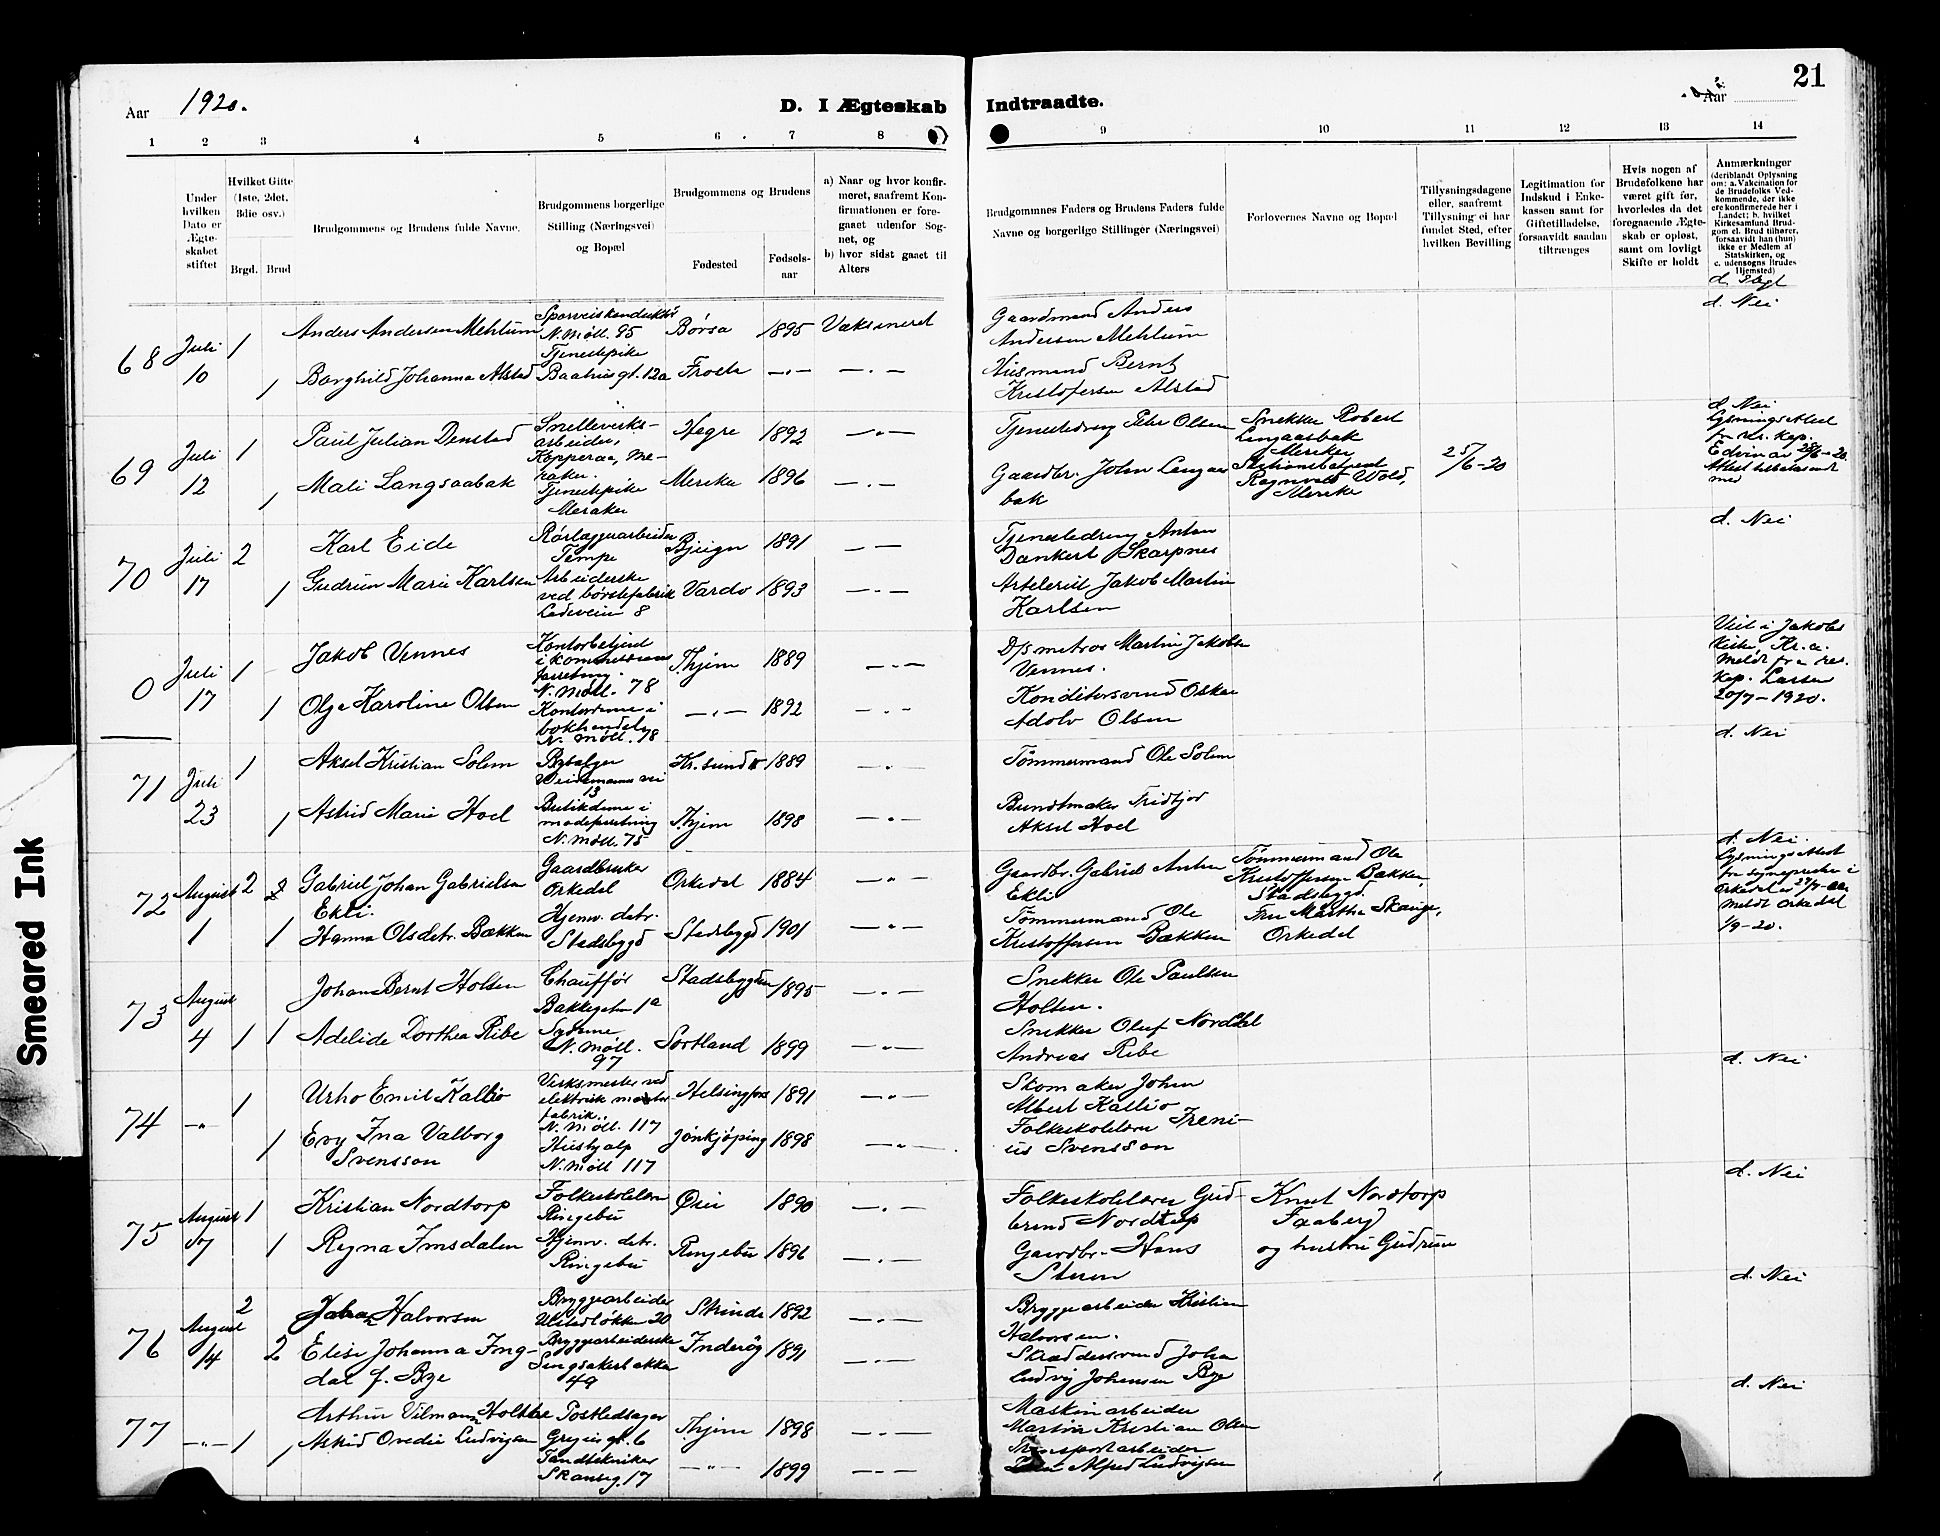 21
Aar 1920.
D. I Ægteskab Indtraadte.
Aar
1 2 3 4 5 6 7 8 9 10 11 12 13 14
Under
hvilken
Dato er
Ægte-
skabet
stiftet
Hvilket Gifte
(1ste, 2det,
3die osv.)
Brgd. Brud
Brudgommens og Brudens fulde Navne.
Brudgommens borgerlige
Stilling (Næringsvei)
og Bopæl
Brudgommens og Brudens
Fødested
Fødsels-
aar
a) Naar og hvor konfir-
meret, saafremt Kon-
firmationen er fore-
gaaet udenfor Sog-
net, og
b) hvor sidst gaaet til
Alters
Brudgommnes Faders og Brudens Faders fulde
Navne og borgerlige Stillinger (Næringsvei)
Forlovernes Navne og Bopæl
Tillysningsdagene
eller, saafremt
Tillysning ei har
fundet Sted, efter
hvilken Bevilling
Legitimation for
Indskud i Enke-
kassen samt for
Giftetilladelse,
forsaavidt saadan
tiltrænges
Hvis nogen af
Brudefolkene har
været gift før,
hvorledes da det
foregaaende Ægte-
skab er opløst,
samt om lovligt
Skifte er holdt
Anmærkninger
(deriblandt Oplysning
om: a. Vakcination for
de Brudefolks Ved-
kommende, der ikke
ere konfirmerede her i
Landet; b. hvilket
Kirkesamfund Brud-
gom el. Brud tilhører,
forsaavidt han (hun)
ikke er Medlem af
Statskirken, og
c. udensogns Brudes
Hjemsted)
d. Slegt
68
Juli
10
1
1
Anders Andersen Mehlum
Sporveiskonduktör
N. Möll. 95
Börsa
1895
Vaksineret
Gaardmand Anders
Andersen Mehlum
d. Nei
Borghild Johanna Alstad
Tjenestepike
Baahusgt. 12a
Frosta
—„—
—„—
Husmand Bernt
Kristofersen Alstad
69
Juli
12
1
1
Paul Julian Denstad
Smelteverks-
arbeider,
Kopperaa, Me-
raker.
Hegre
1892
—„—
Tjenestedreng Peter Olsen
Snekker Robert
Langaasbak
Meraker
25/6-20
d. Nei
Mali Langsaabak
Tjenestepike
Meraker
Meraker
1896
—„—
Gaardbr. John Langaas
bak
Ragnvald Wold,
Meraker
70
Juli
17
2
1
Karl Eide
Rörlæggerarbeider
Tempe
Bjugn
1891
—„—
Tjenestedreng Anton
Dankert Skarpnes
d. Nei
Gudrun Marie Karlsen
Arbeiderske
ved börstefabrik
Ladeveien 8
Vardö
1893
—„—
Jakob Martin
Karlsen
0
Juli
17
1
1
Jakob Vennes
Kontorbetjent
N. Möll. 78
T.hjem
1889
—„—
D/s matros Martin Jakobsen
Vennes.
Viet i Jakobs
Kirke, Kr.a.
Meldt fra res.
Kap. Larsen
20/7-1920.
Olga Karoline Olsen
Kontordame i
bokhandel
N. Möll. 78
—„—
1892
—„—
Konditorsvend Oskar
Adolv Olsen
71
Juli
23
1
1
Aksel Kristian Solem
Weidemanns vei
13
Kr.sund N
1889
„
Tömmermand Ole Solem
d. Nei
Astrid Marie Hoel
Butikdame i
moteforretning
N. Möll. 75
T.hjem
1898
—„—
Buntmaker Fridtjof
Aksel Hoel
72
August
1
2
1
Gabriel Johan Gabrielsen
Ekli.
Gaardbruker
Orkedal
Orkedal
1884
—„—
Gaardbr. Gabriel Anton
Ekli
Tömmermand Ole
Kristoffersen Bakken,
Stadsbygd.
d. Nei.
Hanna Olsdatr. Bækken
Hjemv. datr.
Stadsbygd
Stadsbygd
1901
—„—
Tömmermand Ole
Kristoffersen Bækken
Fru Martha Skauge,
Orkedal
Meldt Orkedal
1/9-20.
73
August
4
1
1
Johan Bernt Holsen
Chauffør
Bakkegaten 1a
Stadsbygden
1895
—„—
Snekker Ole Paulsen
Holten.
Adelide Dorthea Ribe
Sydame
N. Möll.
97
Sortland
1899
—„—
Snekker Oluf Nordahl
Andreas Ribe
74
—„—
1
1
Urho Emil Kallio
Verksmester ved
elektrisk motor
fabrik.
N. Möll. 117
Helsingfors
1891
—„—
Skomaker Johan
Albert Kallio
d. Nei
Evy Ina Valborg
Svensson
Hushjalp
N. Möll 117
Jönkjöping
1898
—„—
Folkeskolelærer Ireni-
us Svensson
75
August
7
1
1
Kristian Nordtorp
Folkeskolelærer
Ringebu
Öier
1890
—„—
Folkeskolelærer Gud-
brand Nordtorp
Knut Nordtorp
Faaberg
d. Nei
Ragna Imsdalen
Hjemv. datr.
Ringebu
Ringebu
1896
—„—
Gaardbr. Hans
Steren
og hustru Gudrun
76
August
14
2
2
Johan Halvorsen
Bryggearbeider
Ulstadlökken 20
Strinda
1892
—„—
Bryggearbeider Kristian
Halvorsen.
d. Nei
Elise Johanna Ing-
dal f. Bye
Bryggearbeiderske
Singsakerbakken
49
Inderöy
1891
—„—
Skræddersvend Johan
Ludvig Johansen Bye
77
—„—
1
1
Arthur Vilmann Holther
Postledsager
T.hjem
1898
—„—
Maskinarbeider
Martin Kristian Olsen
d. Nei
Astrid Ovedie Ludvigsen
Tandtekniker
Skanseg. 17
—„—
1899
—„—
Transportarbeider
Alfred Ludvigsen
Smeared Ink